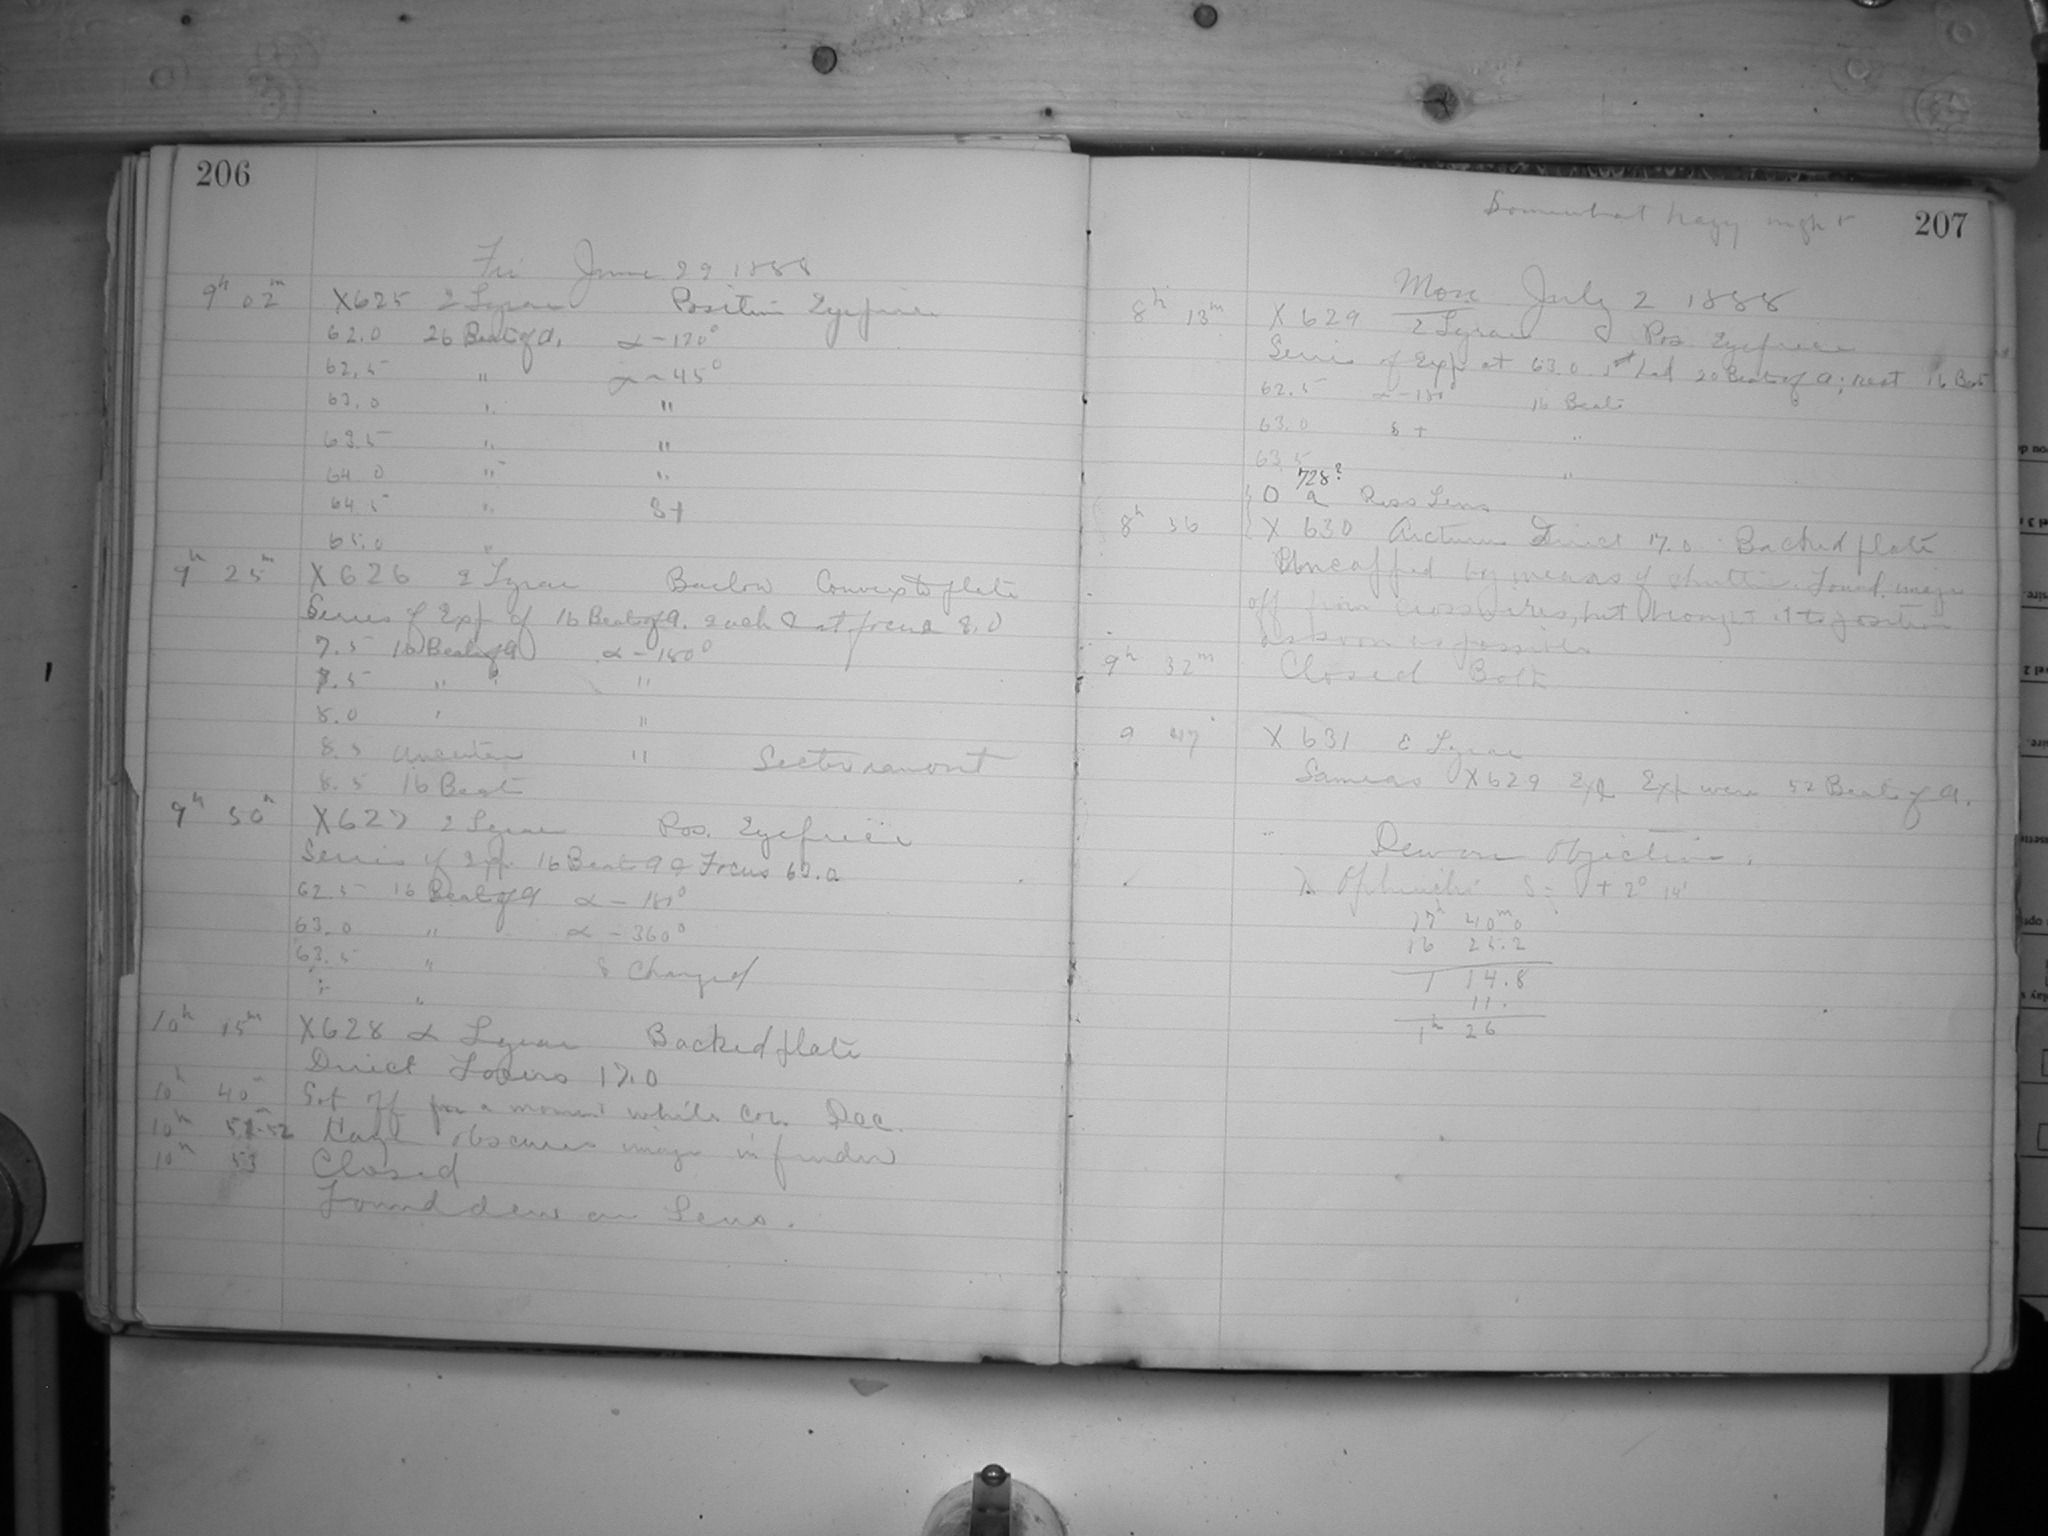 206
Fri June 29 1888
9h 02m X625 ε Lyrae Position Eyepiece
62.0 26 Beats of a. α - 170°
62.5 " α - 45°
63.0 " "
63.5 " "
64.0 " "
64.5 " δ +
65.0 "
9h 25m X626 ε Lyrae Barlow Convex to plate
Series of Exp. of 16 Beats of a. each at focus 8.0
7.5 16 Beats of a α - 180°
7.5 " "
8.0 " "
8.5 Uncertain " Sector
8.5 16 Beats
9h 50m X627 ε Lyrae Pos. Eyepiece
Series of Exp. 16 Beats a Focus 63.0
62.5 16 Beats of a α - 180°
63.0 " α - 360°
63.5 " δ Changed
" "
10h 15m X628 α Lyrae Backed plate
Direct Focus 17.0
10h 40m Got off for a moment while cor. Dec.
10h 51-52 Haze obscures image in finder
10h 53 Closed
Found dew on Lens.
207
Somewhat hazy night
Mon July 2 1888
8h 13m X 629 ε Lyrae Pos Eyepiece
Series of Exp at 63.0 1st had 20 Beats of a; next 16 Beats
62.5 α - 180° 16 Beats
63.0 δ + "
63.5 "
728?
0 a Ross Lens
8h 36 X 630 Arcturus Direct 17.0 Backed plate
Uncapped by means of shutter. Found image
off from crosswires, but brought it to position
as soon as possible
9h 32m Closed Both
9 47 X 631 ε Lyrae
Same as X629 Exp were 52 Beats of a.
Dew on Objective.
Ophiuchi δ = + 2° 14'
17h 40m0
16 25.2
1 14.8
11.
1h 26